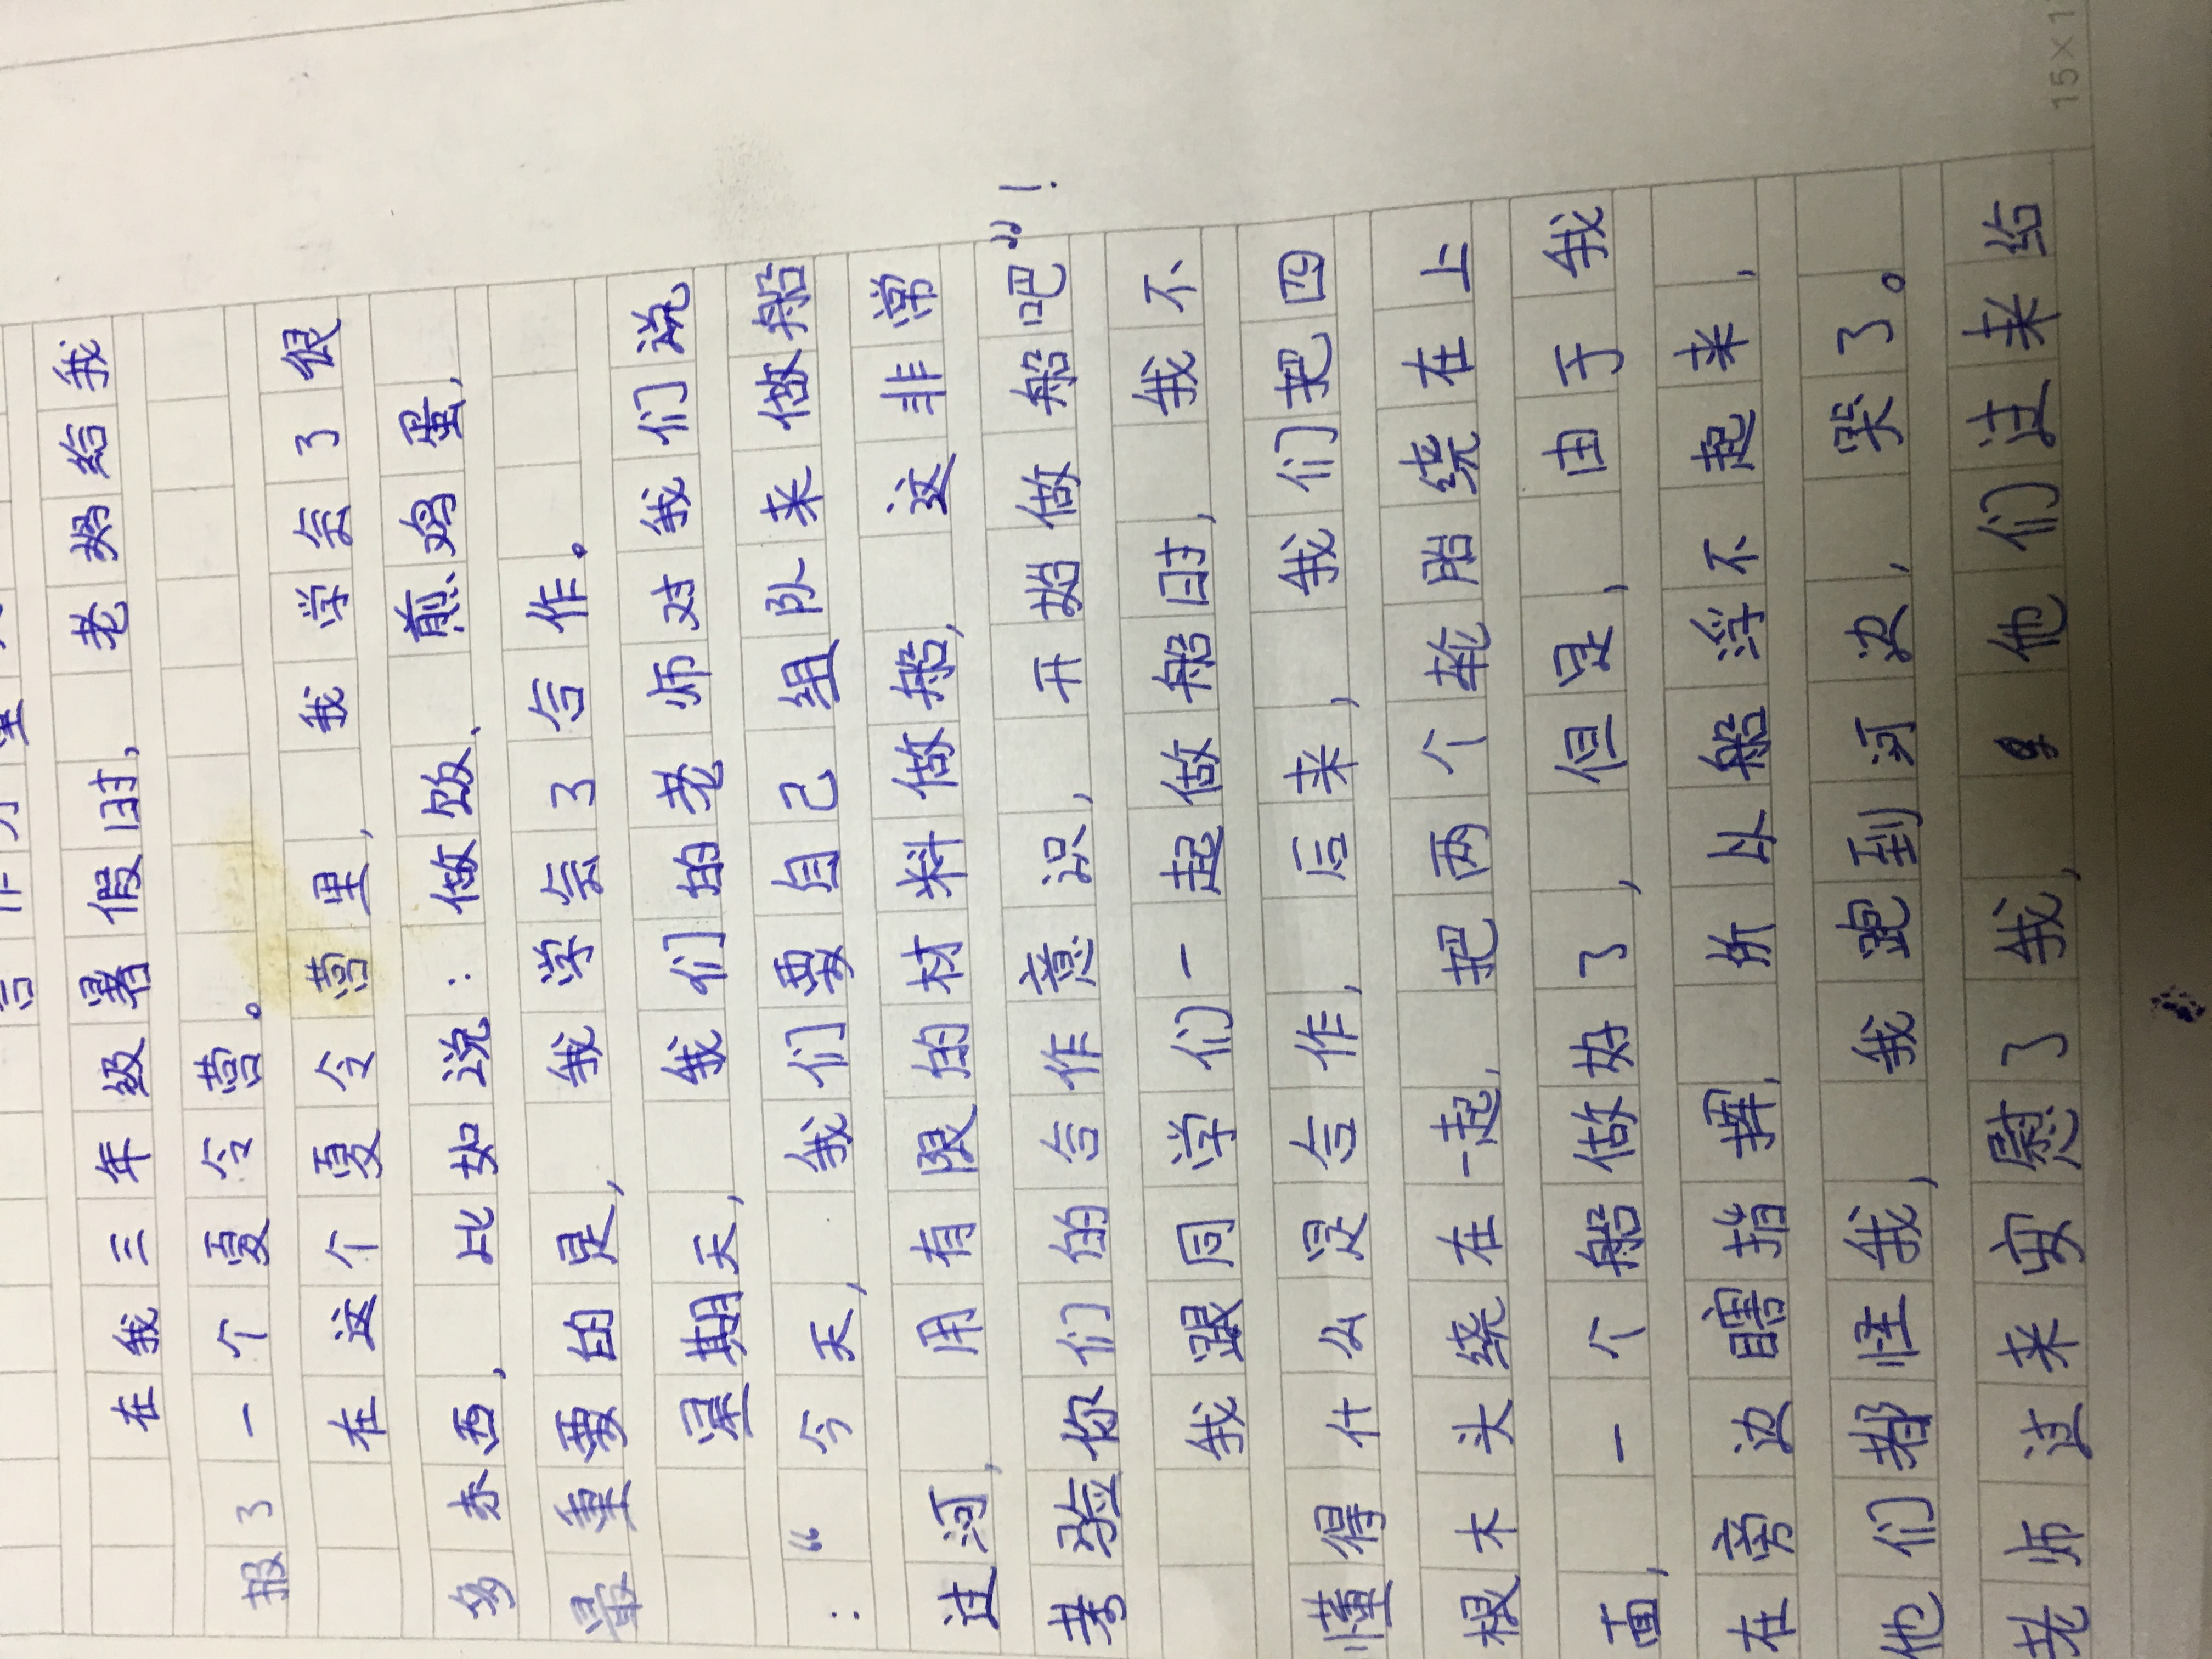 在我三年级暑假时，老妈给我
报了一个夏令营。
在这个夏令营里，我学会了很
多东西，比如说：做饭、煎鸡蛋，
最重要的是，我学会了合作。
星期天，我们的老师对我们说
：“今天，我们要自己组队来做船
过河，用有限的材料做船，这非常
考验你们的合作意识，开始做船吧”！
我跟同学们一起做船时，我不
懂得什么是合作，后来，我们把四
根木头绕在一起，把两个轮胎绕在上
面，一个船做好了，但是，由于我
在旁边瞎指挥，所以船浮不起来，
他们都怪我，我跑到河边，哭了。
老师过来安慰了我，他们过来给
15×1